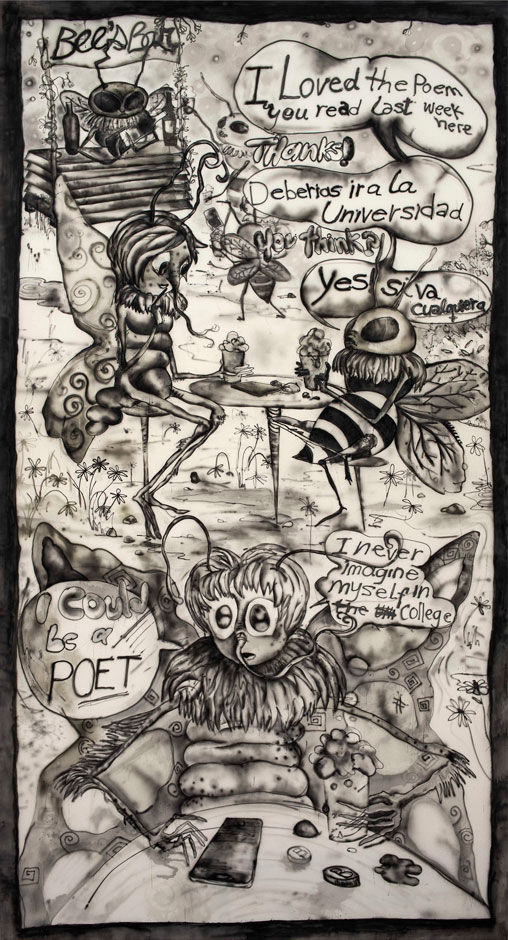 Bee's Bar
I Loved the Poem
you read last week
here
Thanks!
Deberias ir a La
Universidad
You think?
Yes, si va
cualquiera
I never
imagine
myself in
the College
I could
be a
POET